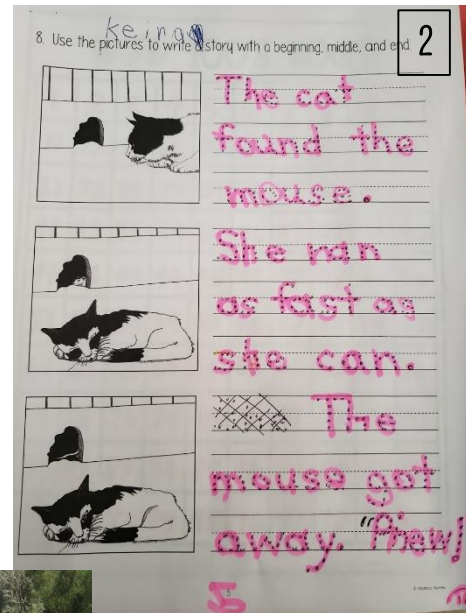 keira
2
8. Use the pictures to write a story with a beginning, middle, and end
The cat
found the
mouse.
She ran
as fast as
she can.
The
mouse got
away. "Phew!
5